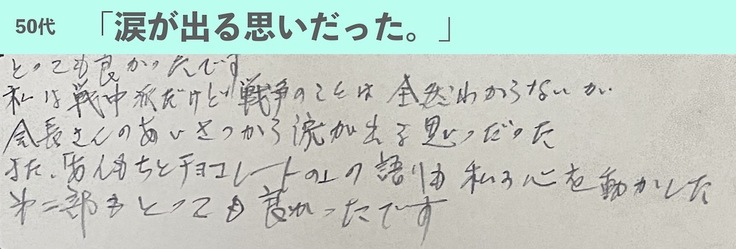 50代 「涙が出る思いだった。」
とっても良かったです
私は戦中派だけど戦争のことは全然わからないが
会長さんのあいさつから涙が出る思いだった
また、「あんもちとチョコレートの」の語りも私の心を動かした
第二部もとっても良かったです